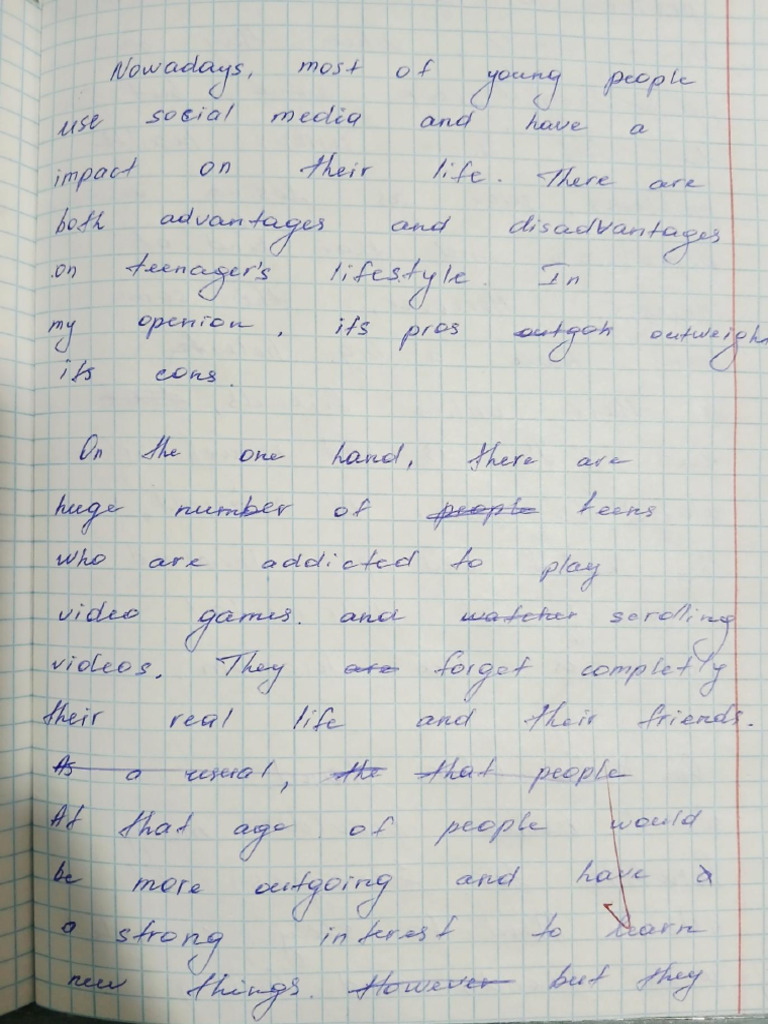 Nowadays, most of young people
use social media and have a
impact on their life. There are
both advantages and disadvantages
on teenager's lifestyle. In
my openion, its pros outgoh outweigh
its cons.
On the one hand, there are
huge number of people teens
who are addicted to play
video games. and watcher scrolling
videos. They are forget completly
their real life and their friends.
As a reseral, the that people
At that age of people would
be more outgoing and have a
a strong interest to learn
new things. However but they